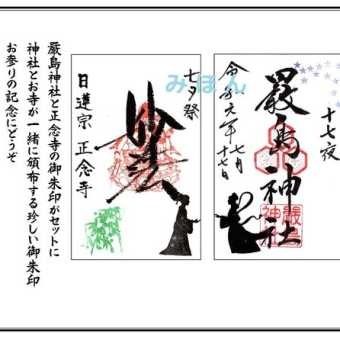 十七夜
嚴島神社
令和元年七月
十七日
みほん
七夕祭
妙法
日蓮宗 正念寺
嚴島神社と正念寺の御朱印がセットに
神社とお寺が一緒に頒布する珍しい御朱印
お参りの記念にどうぞ